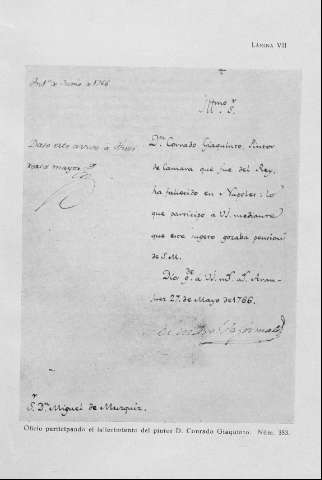 LÁMINA VII
de Junio de 1766
Yllmo. Sr.
Dn. Conrado Giaquinto, Pintor
de Camara que fue del Rey,
ha fallecido en Napoles: lo
que participo a V.I. mediante
que este sugeto gozaba pension
de S.M.
Dese este aviso a
mayor
Dios gde. a V.I. ms. as. Aran-
juez 27 de Mayo de 1766.
Sr. Dn. Miguel de Muzquiz.
Oficio participando el fallecimiento del pintor D. Conrado Giaquinto. Núm. 353.